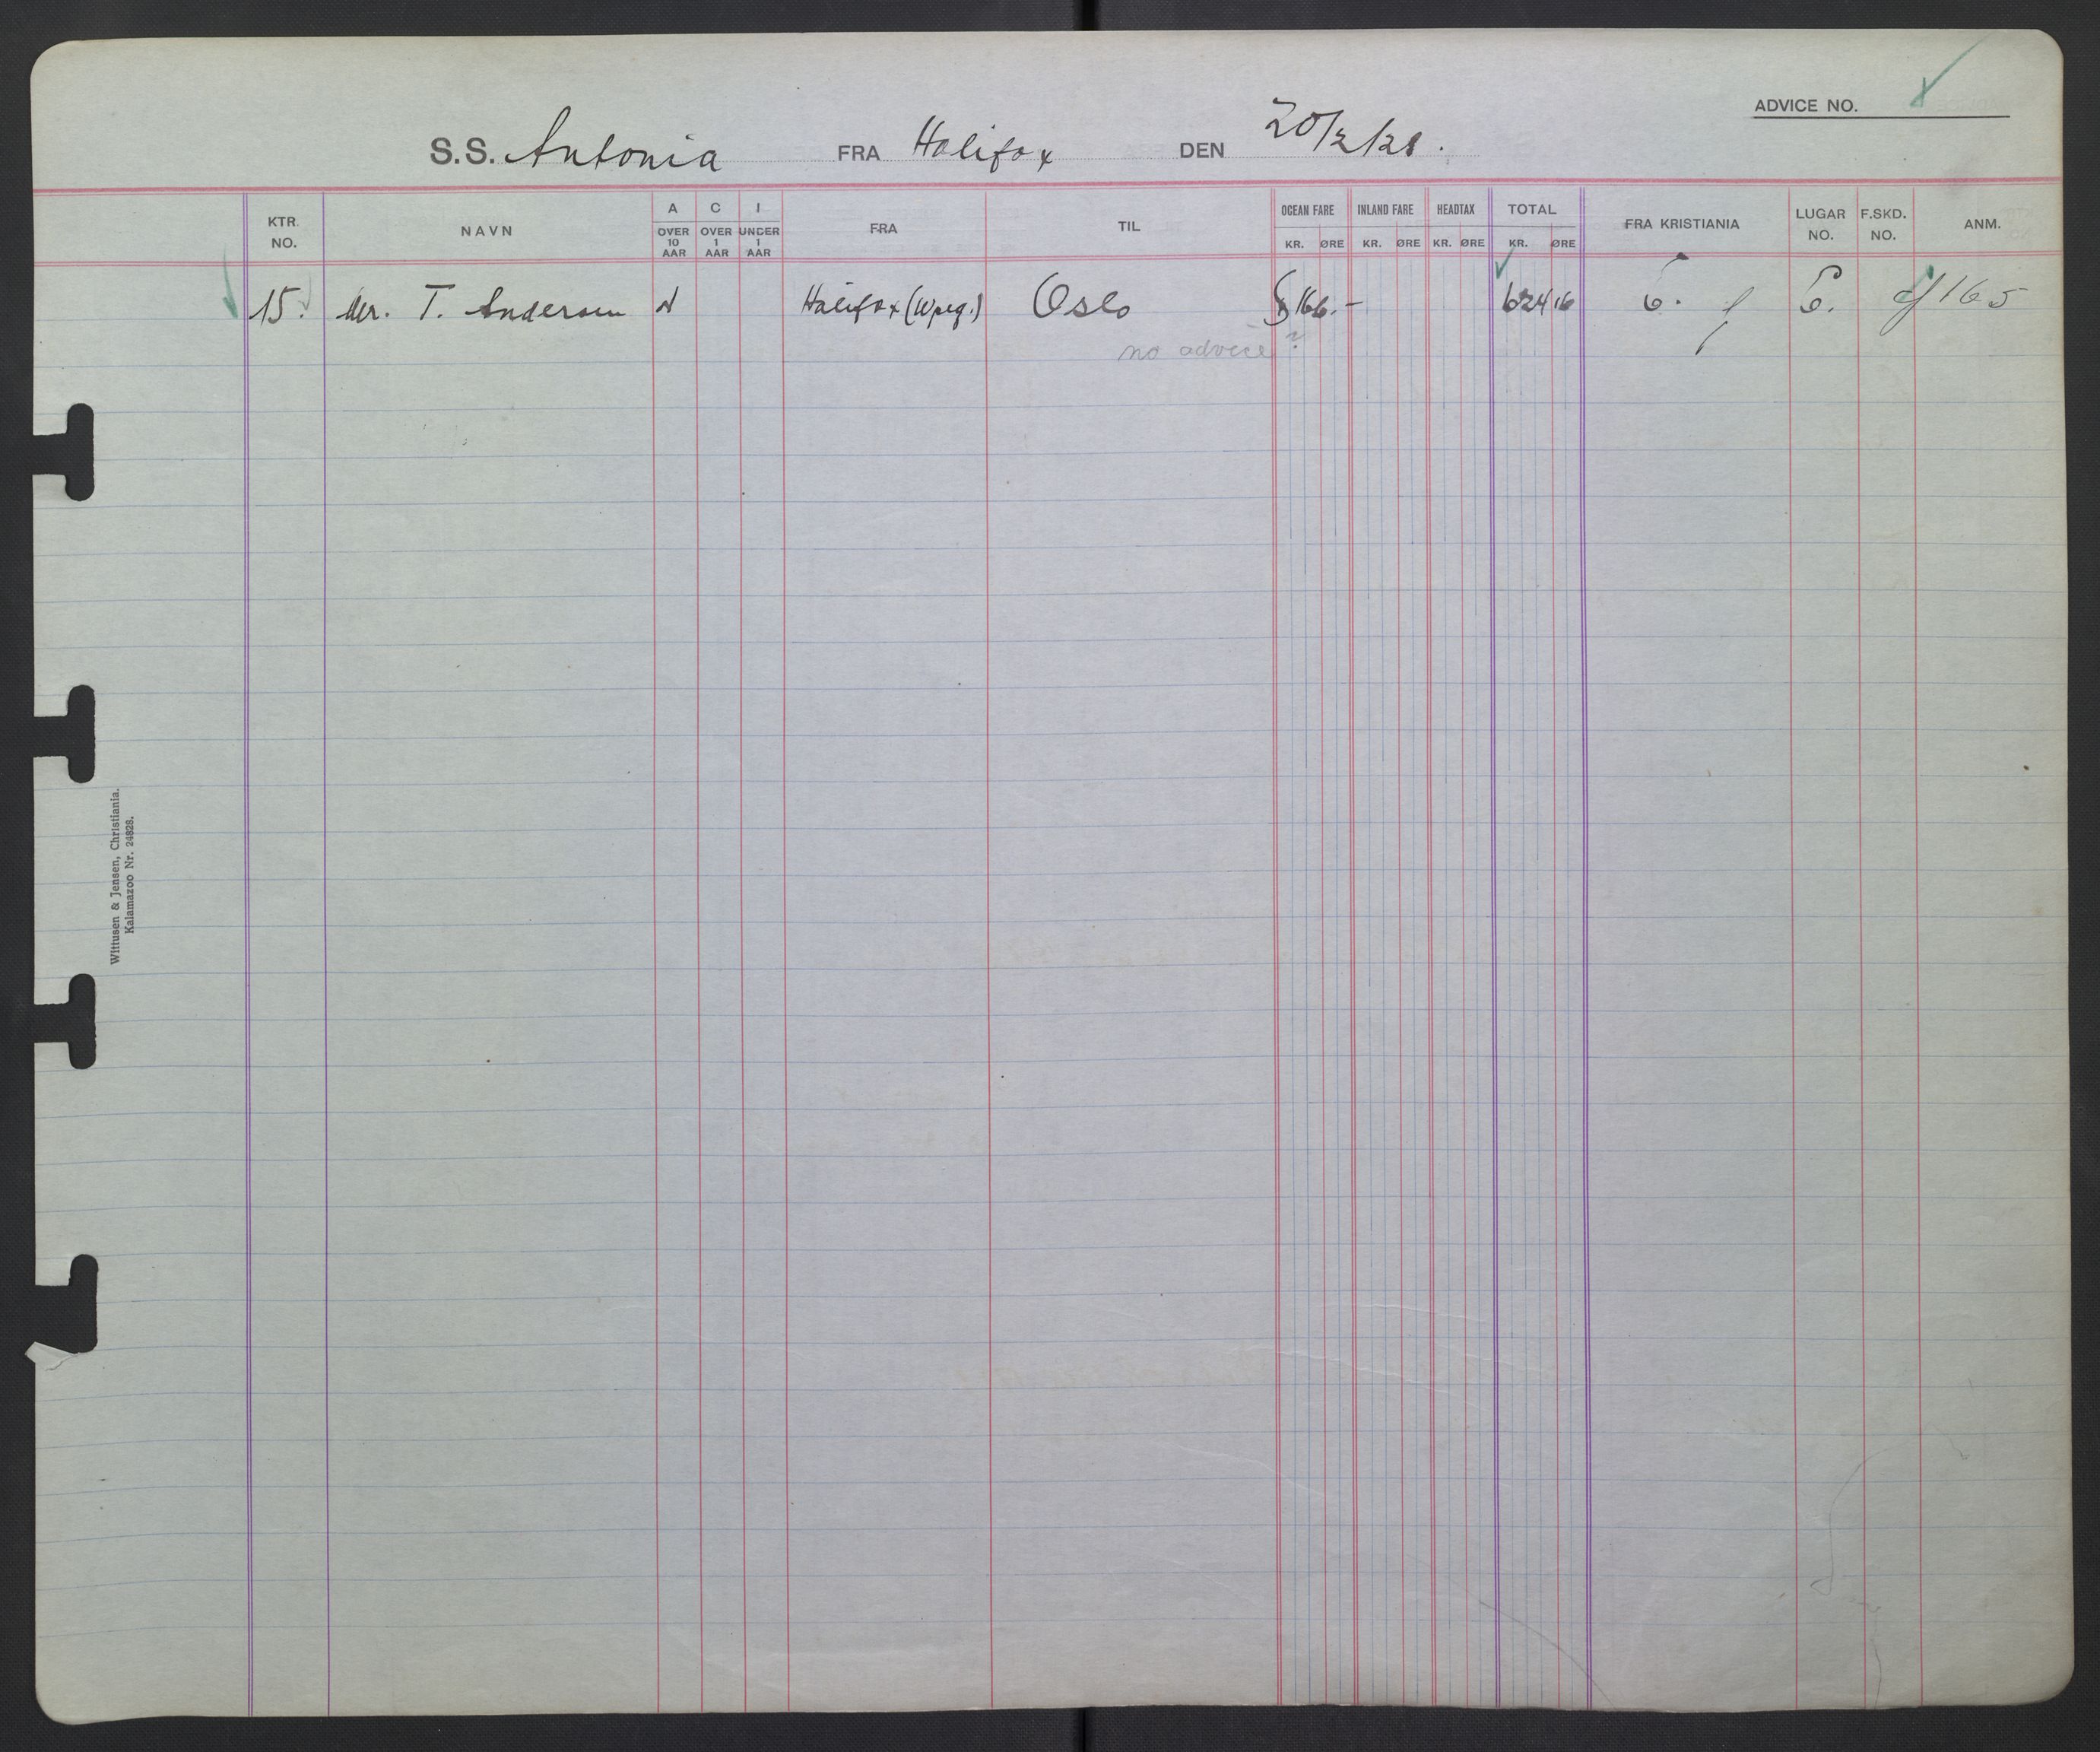 ADVICE NO.
S.S. Antonia FRA Halifax DEN 20/2/28.
KTR. NO. NAVN A OVER 10 AAR C OVER 1 AAR I UNDER 1 AAR FRA TIL OCEAN FARE KR. ØRE INLAND FARE KR. ØRE HEADTAX KR. ØRE TOTAL KR. ØRE FRA KRISTIANIA LUGAR NO. F.SKD. NO. ANM.
15. Mr. T. Andersen Halifax (Wpeg.) Oslo $166.- 624 16 165
no advice?
Wittusen & Jensen, Christiania.
Kalamazoo Nr. 24828.